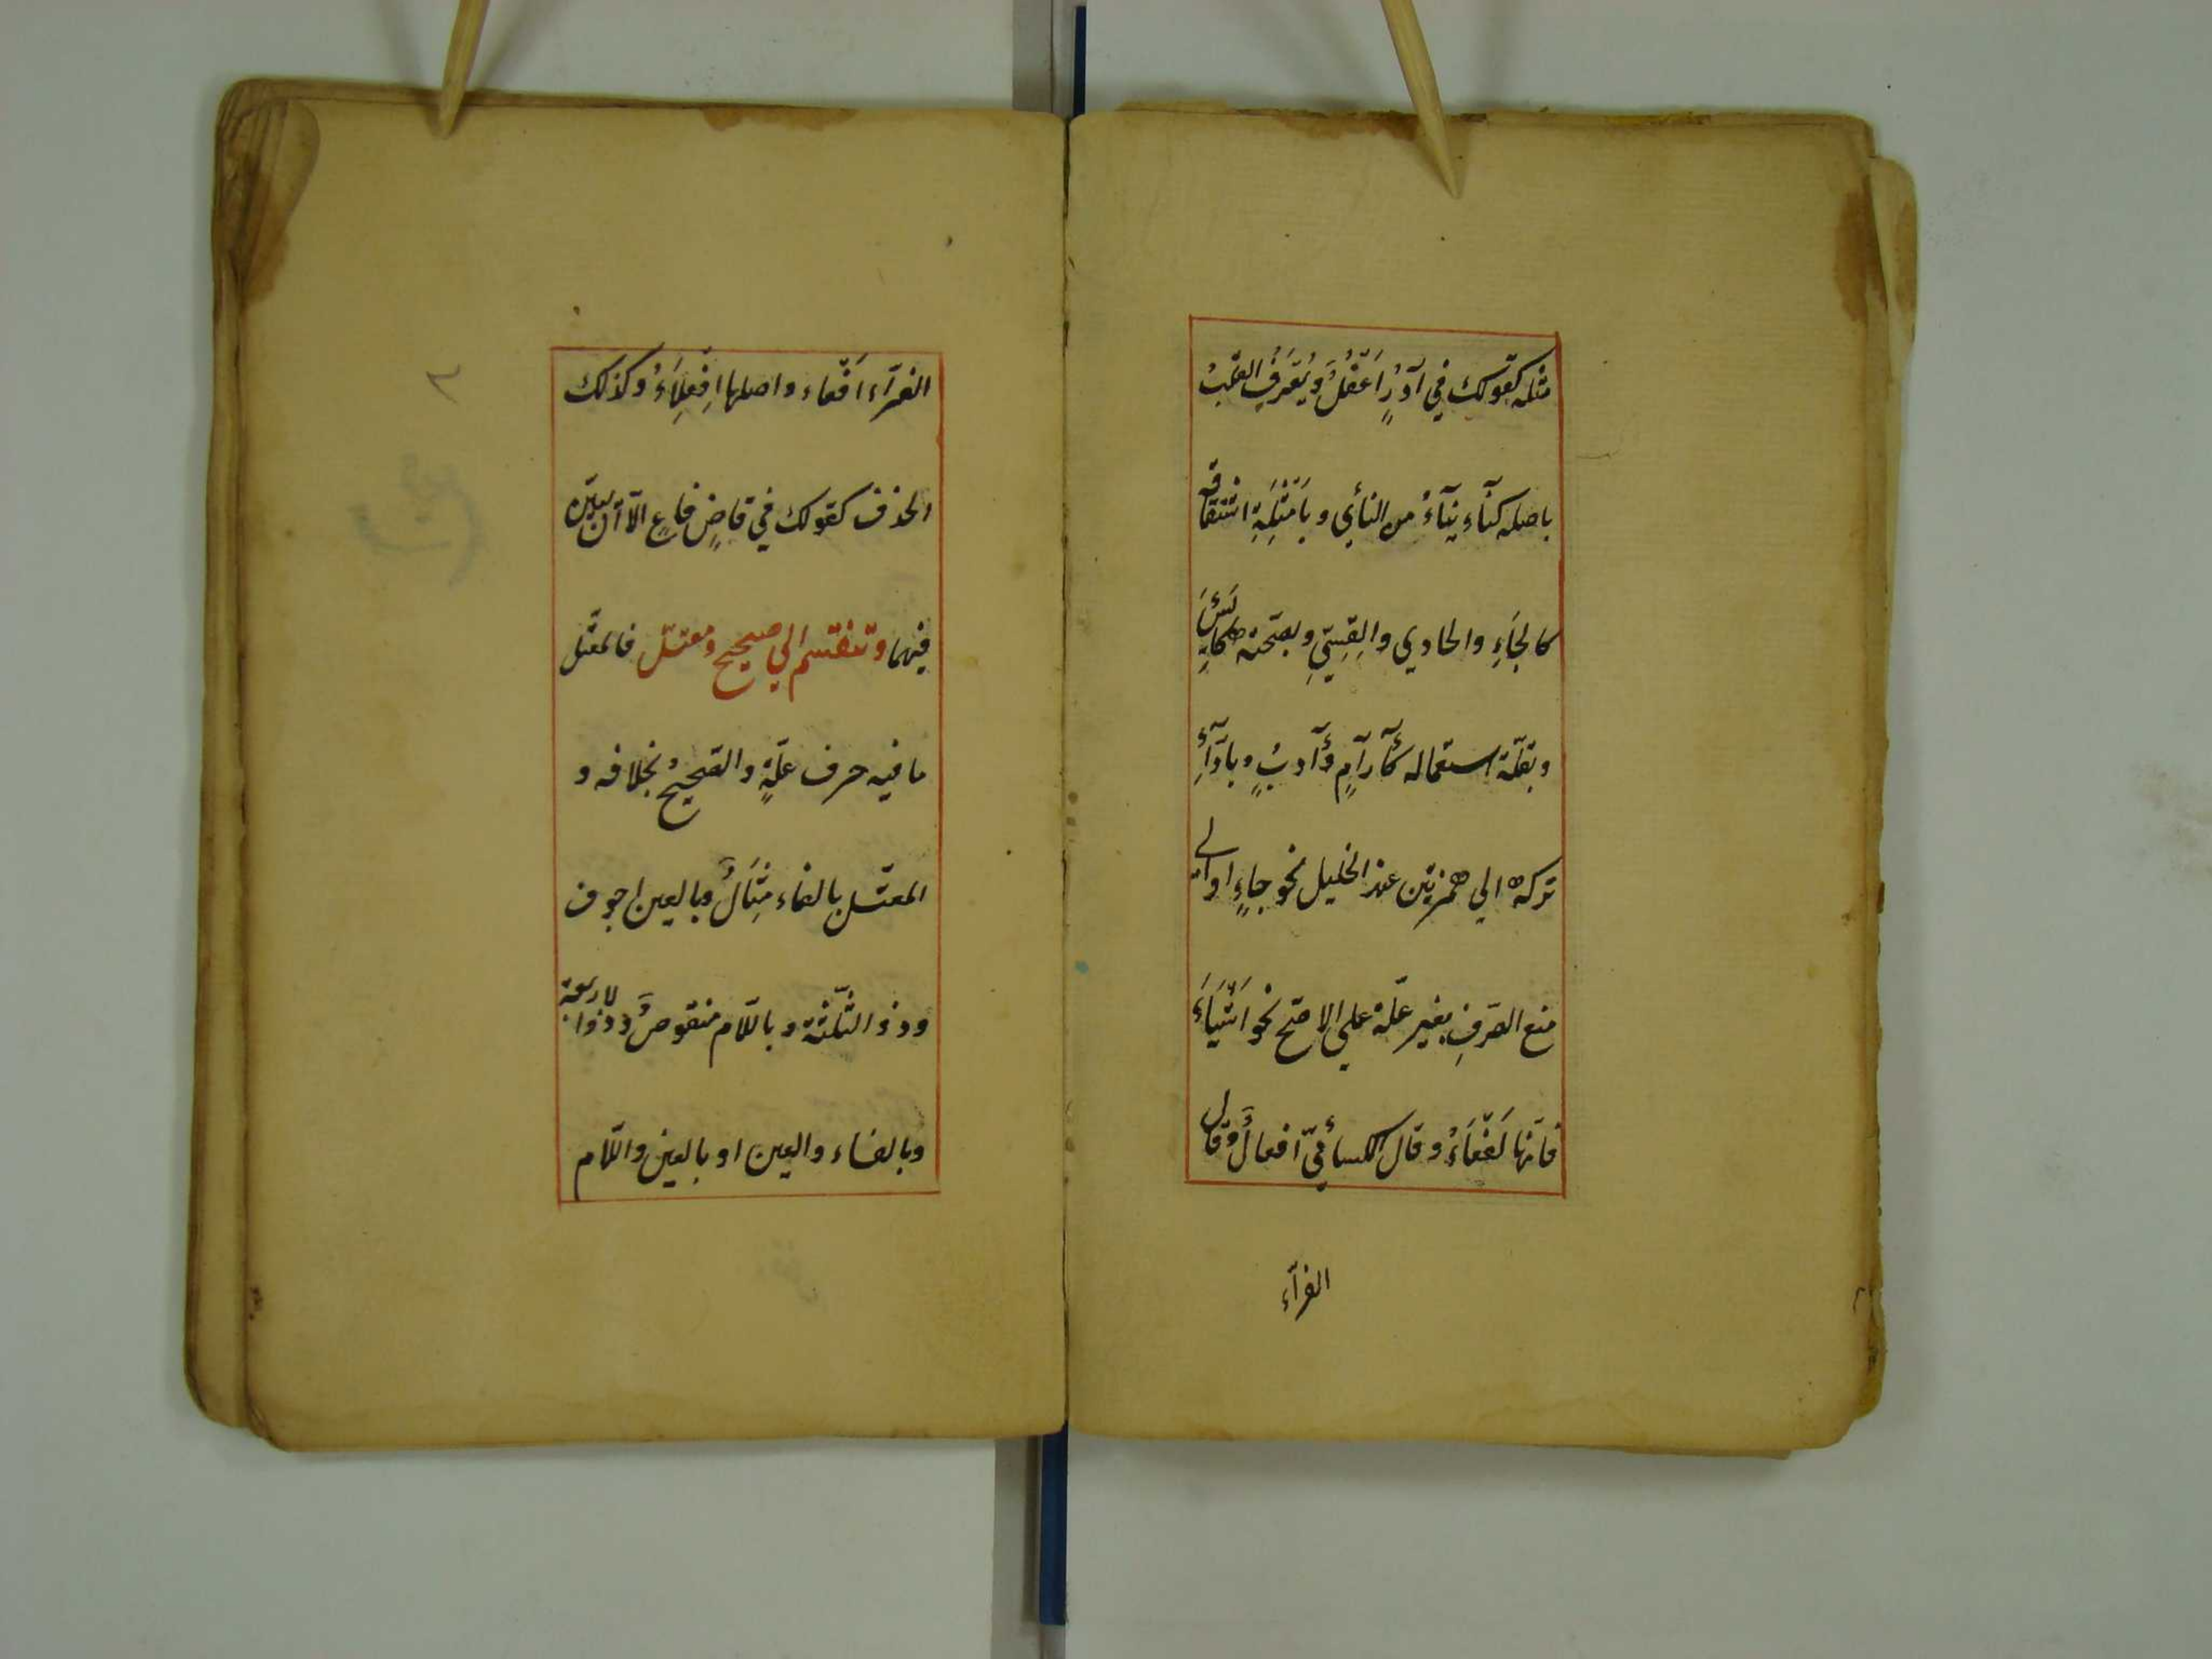 مثله كقولك في آدُرٍ اَعْفُلٌ ويُعَرَفُ القلبُ
باصله كنآء ينآءُ من النأي وبأَمْثِلَةِ اشتقاقه
كالجَاءِ والحادي والقِسِيِّ وبصحّته كاَيِسَ
وبقلّة استعماله كآرآمٍ وآدرٍ وبادآء
تركه الي همزتين عند الخليل نحو جاءٍ او الي
منع الصّرفِ بغير علّة علي الاصحّ نحو اَشْيَاءَ
فانّها لَفْعَاءُ وقال الكسائيّ افعالٌ وقال
الفرآء
٢
الفرّآء اَفْعاء واصلها اَفْعِلَاءُ وكذلك
الحذف كقولك في قاضٍ فاعٍ الّا ان يبيّن
فيهما وتنقسم الي صحيح ومعتلّ فالمعتّل
ما فيه حرف علّةٍ والصّحيحُ بخلافه و
المعتّل بالفاء مِثَالٌ وبالعين اجوف
وذو الثّلثة وباللّام منقوصٌ وذوالاربعة
وبالفاء والعين او بالعين واللّام